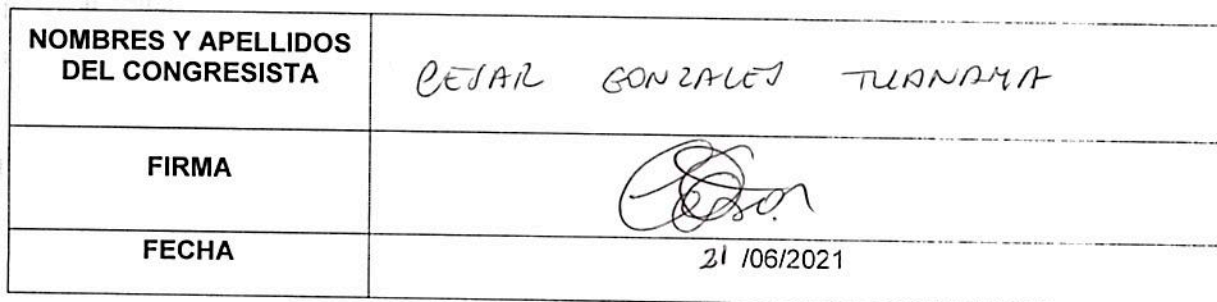 NOMBRES Y APELLIDOS
DEL CONGRESISTA
CESAR GONZALES TUANAMA
FIRMA
Cesar
FECHA
21 /06/2021